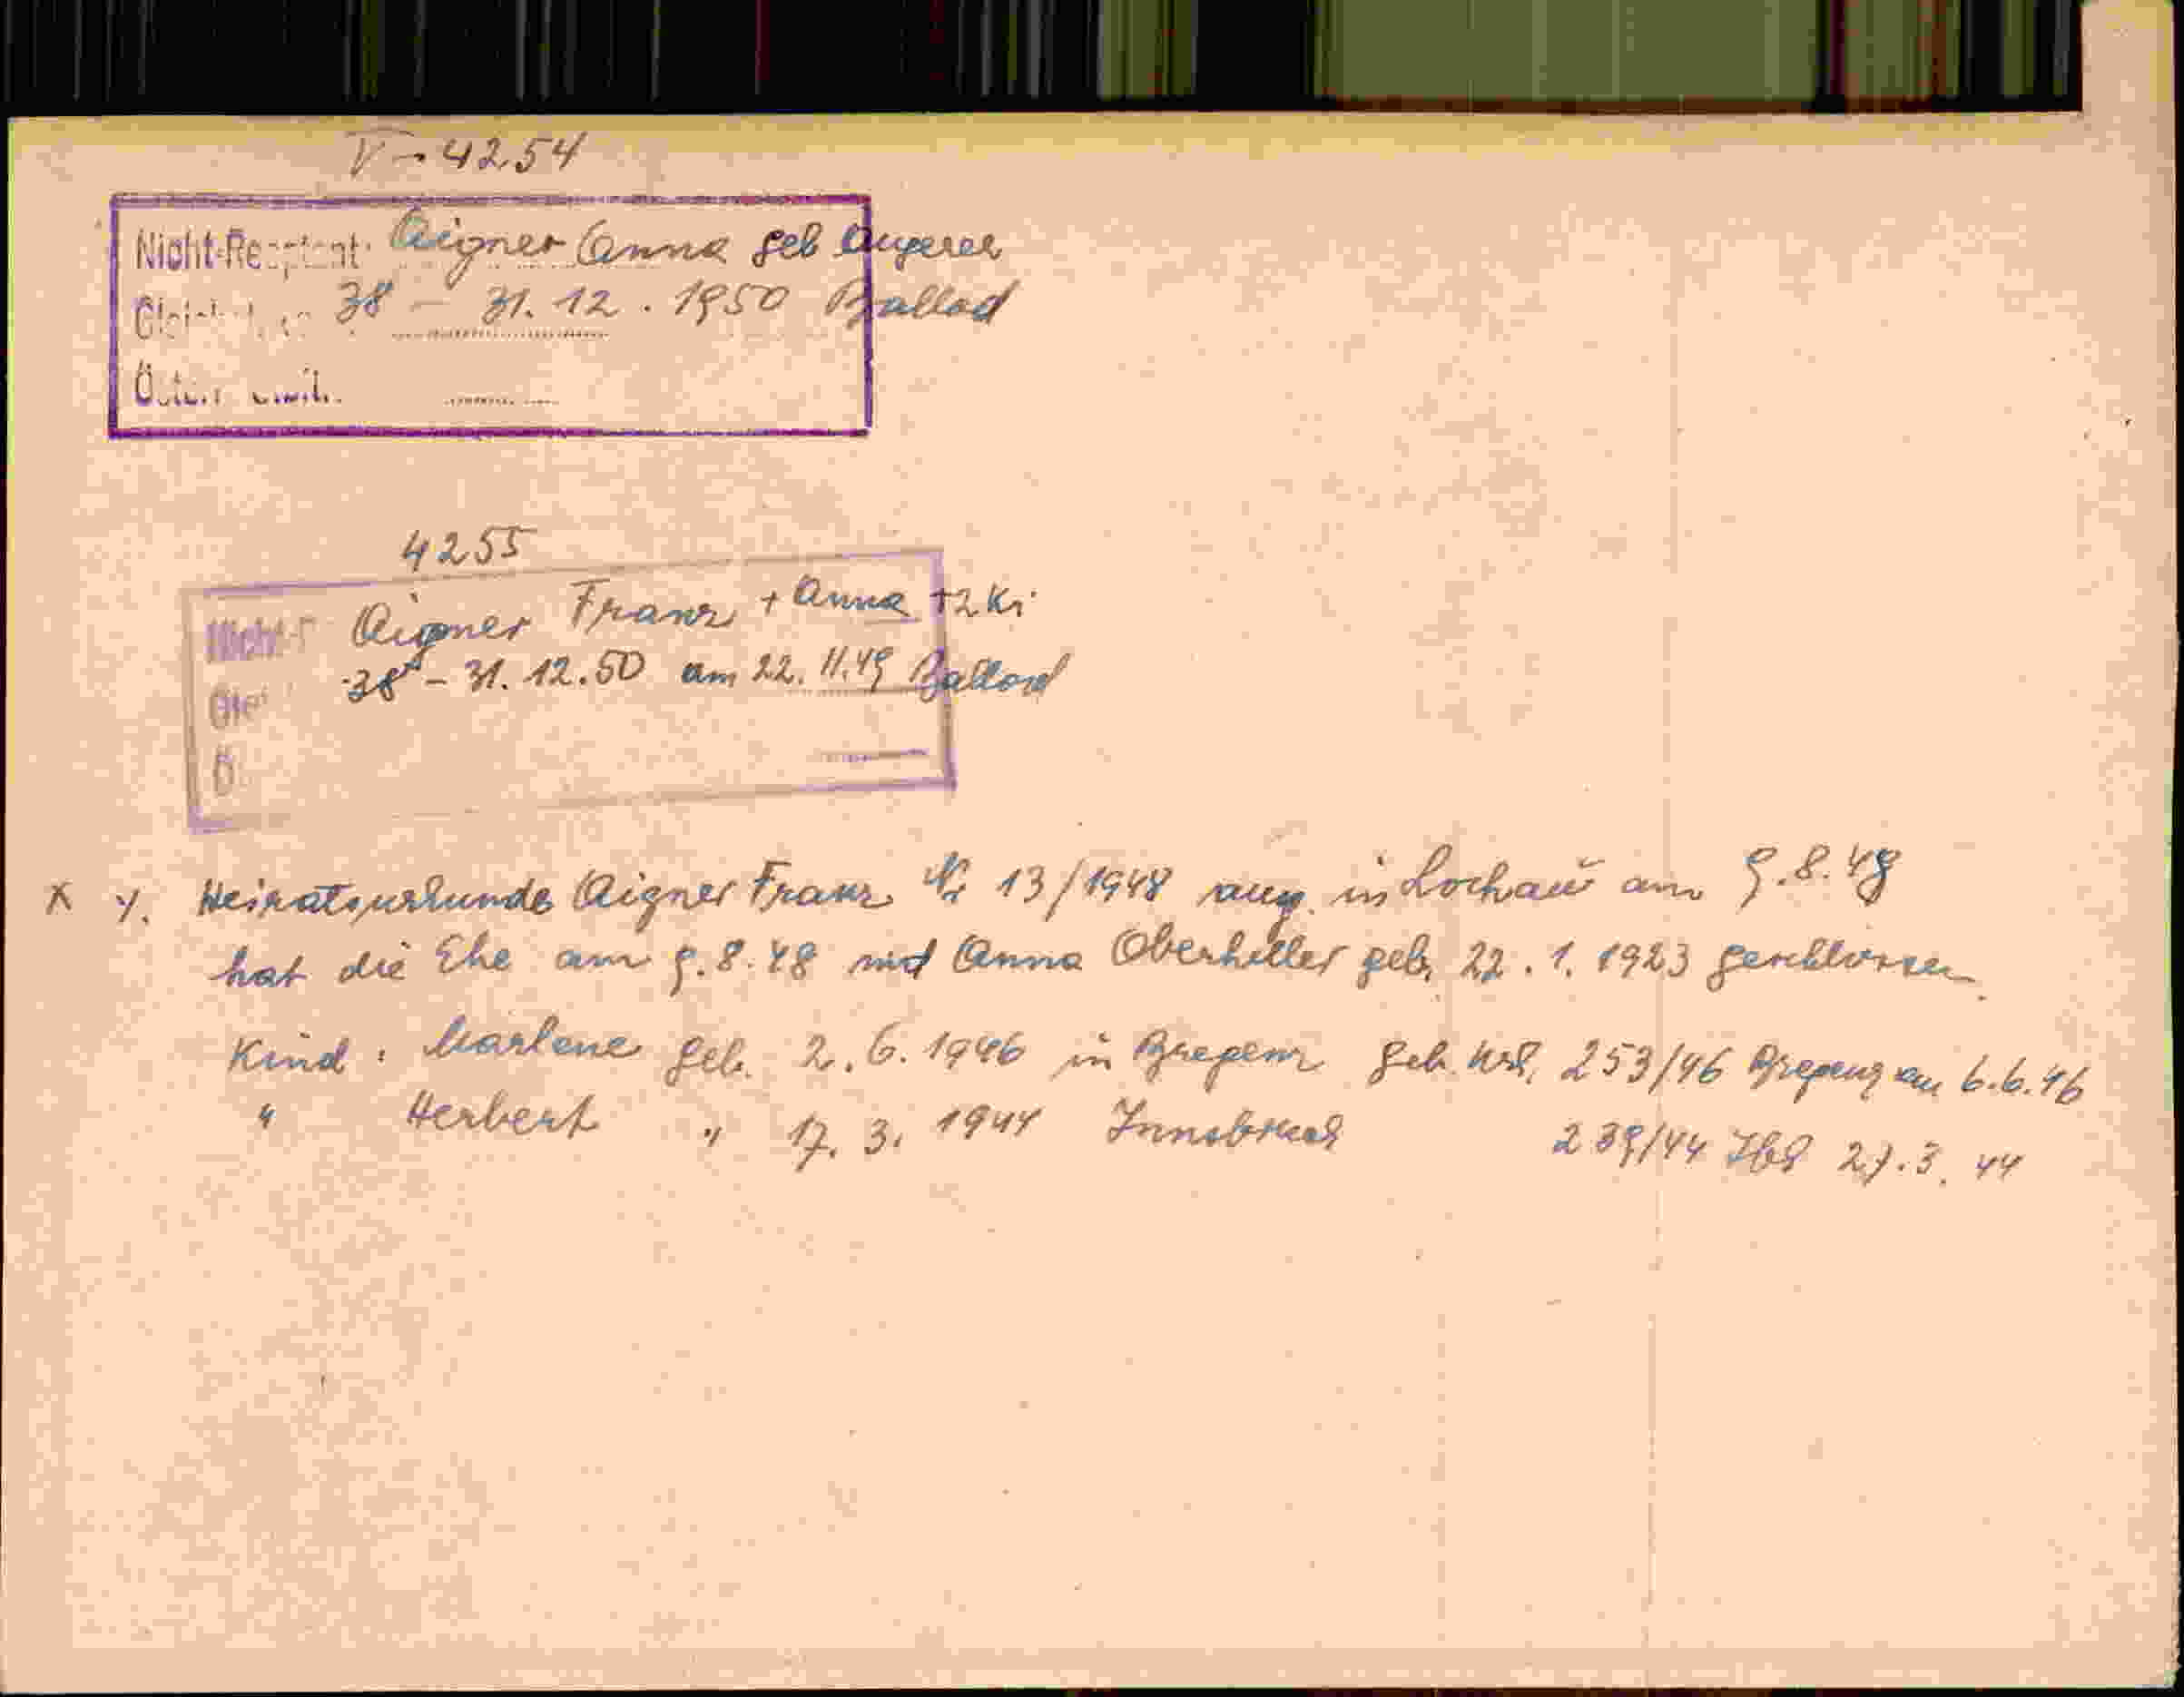 V - 4254
Nicht-Reoptant: Aigner Anna geb Angerer
38 - 31.12.1950 Ballod
4255
Nicht-R Aigner Franz + Anna + 2 Ki
38 - 31.12.50 am 22.11.49 Ballod
Ö
x y. Heiratsurkunde Aigner Franz Nr 13/1948 ausg. in Lochau am 9.8.48
hat die Ehe am 9.8.48 mit Anna Oberhiller geb. 22.1.1923 geschlossen
Kind: Marlene geb. 2.6.1946 in Bregenz geb. Urk. 253/46 Bregenz am 6.6.46
" Herbert " 17.3.1944 Innsbruck 239/44 Ibk 27.3.44